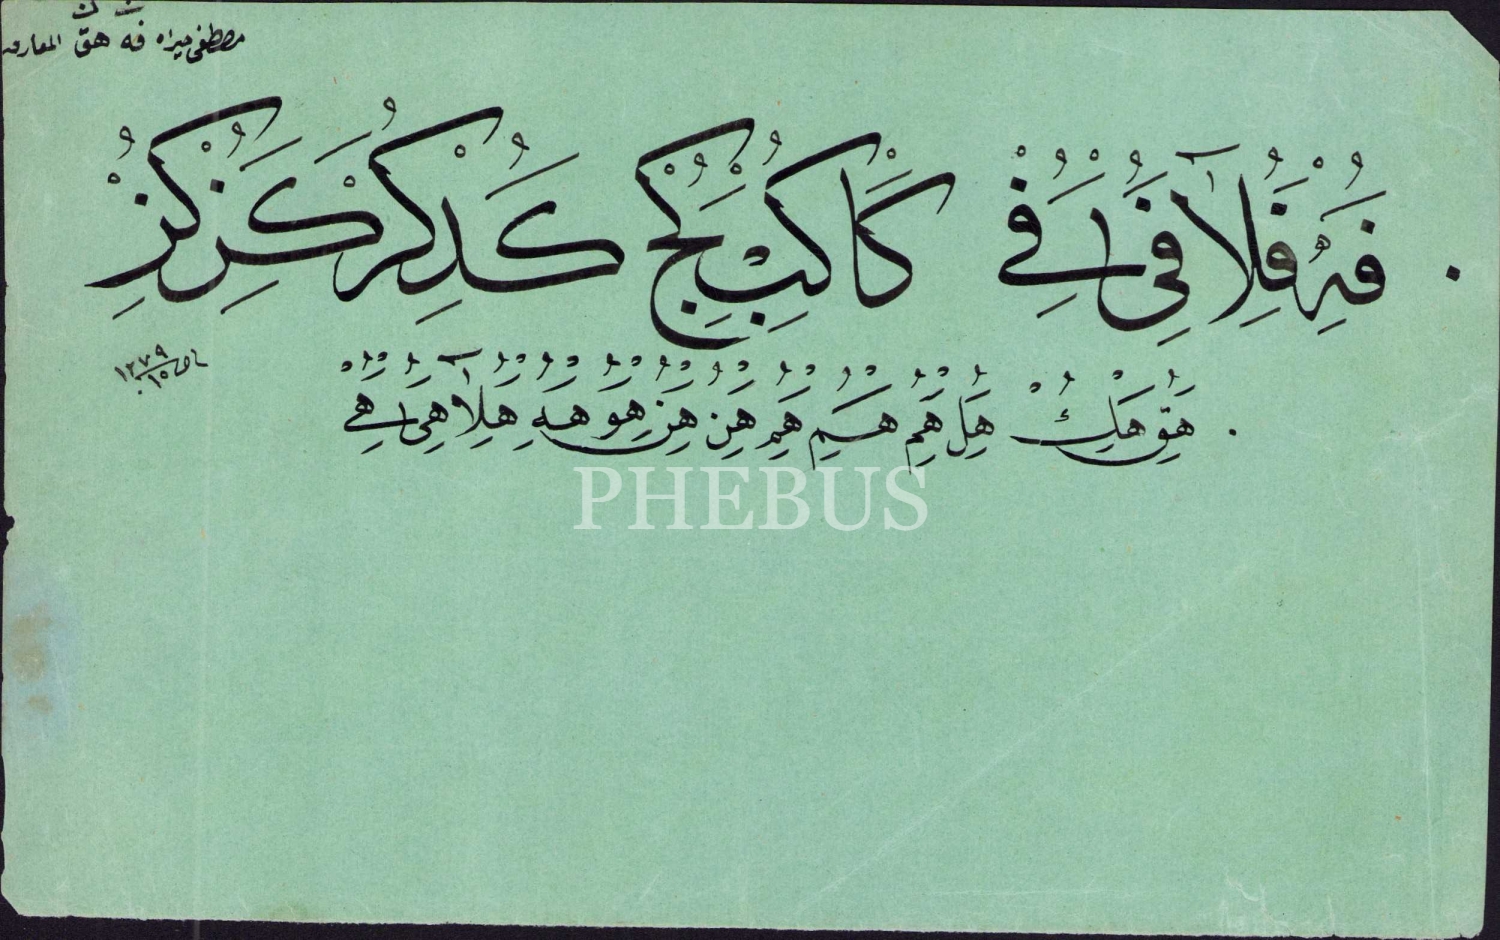 مصطفى فه هق المعارف
فَهُ فَلَا فِي فِے كَا كِبُ كِجُ كَدُ كِرُ كَزُ كِزُ
١٢٧٩
١٥
هَقِ هَكِ هَلِ هَمِ هَمِ هَمِ هَنِ هَنِ هَوِ هَهِ هَلَا هَى هَے
PHEBUS